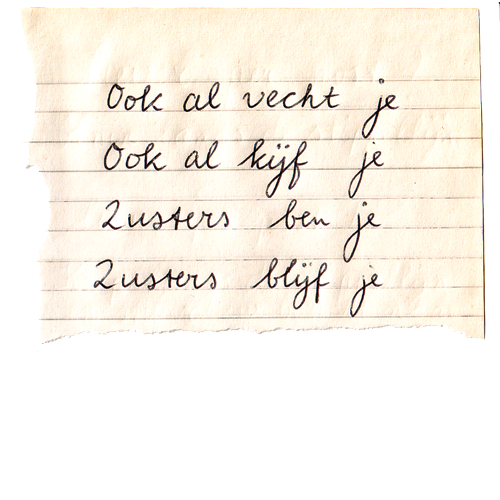 Ook al vecht je
Ook al kijf je
Zusters ben je
Zusters blijf je